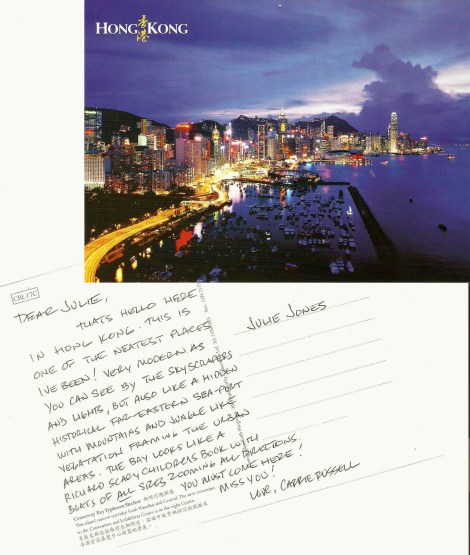 HONG 香港 KONG
CBL17C
DEAR JULIE,
THATS HELLO HERE
IN HONG KONG. THIS IS
ONE OF THE NEATEST PLACES
I'VE BEEN! VERY MODERN AS
YOU CAN SEE BY THE SKYSCRAPERS
AND LIGHTS, BUT ALSO LIKE A HIDDEN
HISTORICAL FAR-EASTERN SEA-POUT
WITH MOUNTAINS AND JUNGLE LIKE
VEGATATION FRAMING THE URBAN
AREAS. THE BAY LOOKS LIKE A
RICHARD SCARY CHILDRENS BOOK WITH
BOATS OF ALL SIZES ZOOMING ALL DIRECTIONS,
YOU MUST COME HERE!
MISS YOU!
LUV, CARRIE RUSSELL
JULIE JONES
Causeway Bay Typhoon Shelter
to the Convention and Exhibition Centre is in the right Centre.